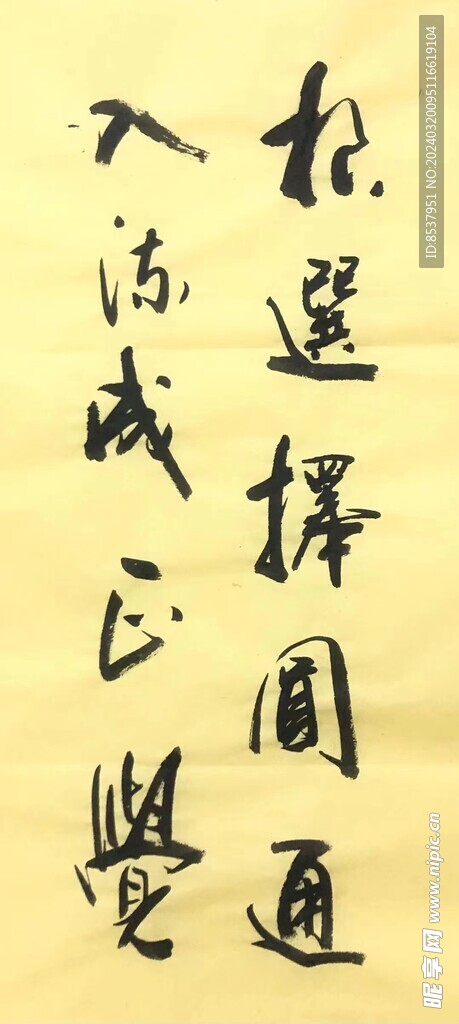 根選擇圓通
入流成正覺
ID:8537951 NO:20240320095116619104
昵享网 www.nipic.cn